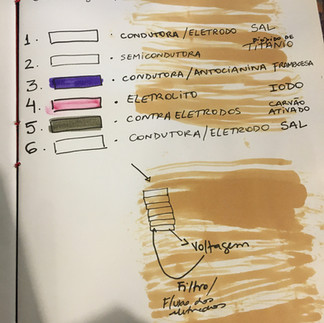 1. - CONDUTORA/ELETRODO SAL
2. - SEMICONDUTORA DIÓXIDO DE TITÂNIO
3. - CONDUTORA/ANTOCIANINA FRAMBOESA
4. - ELETROLITO IODO
5. - CONTRAELETRODOS CARVÃO ATIVADO
6. - CONDUTORA/ELETRODO SAL
Voltagem
Filtro/
Fluxo dos
eletrodos